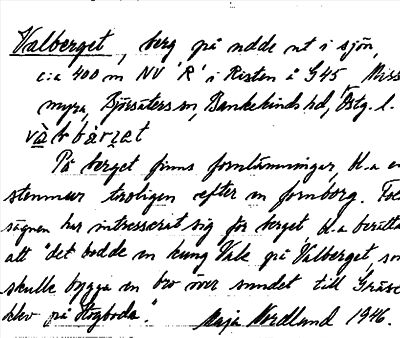 Valberget, berg på udde ut i sjön,
c:a 400 m NV 'R' i Risten å G45
myra, Björsäters sn, Bankekinds hd, Östg. l.
På berget finns fornlämningar, bl.a en
stenmur troligen efter en fornborg.
sägnen har intresserat sig för berget bl.a berätta
att "det bodde en kung Vale på Valberget, som
skulle bygga en bro över sundet till
klev på Högboda". Maja Nordlund 1946.